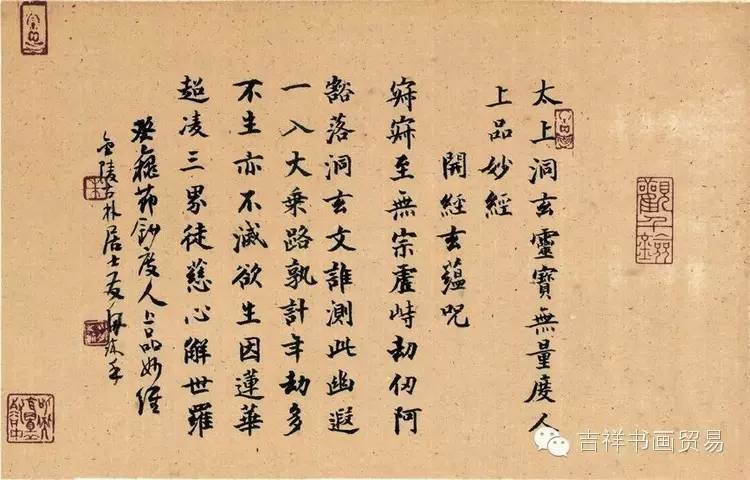 太上洞玄靈寶無量度人
上品妙經
開經玄蘊呪
寂寂至無宗虛峙劫仞阿
豁落洞玄文誰測此幽遐
一入大乘路孰計年劫多
不生亦不滅欲生因蓮華
超凌三界徒慈心解世羅
癸巳節鈔度人上品妙經
金陵古林居士
吉祥书画贸易